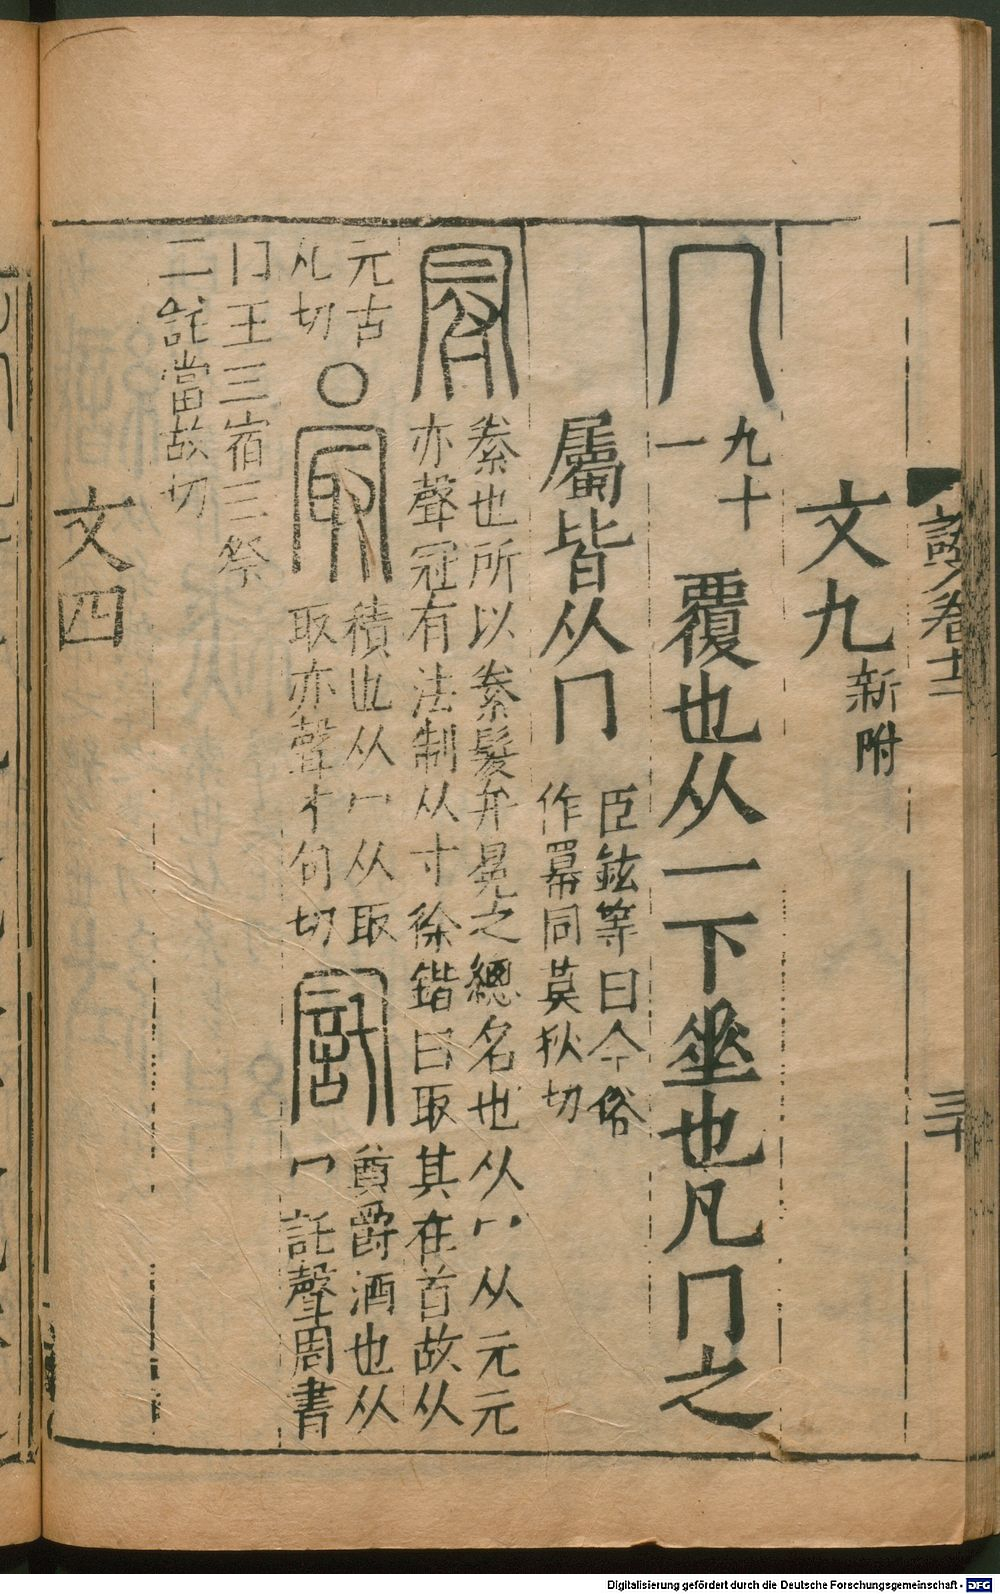 文九新附
冂
九十
一
覆也从一下𠂹也凡冂之
屬皆从冂
臣鉉等曰今俗
作冪同莫狄切
冠
絭也所以絭髮弁冕之總名也从冖从元元
亦聲冠有法制从寸徐鍇曰取其在首故从
元古
丸切
○
冣
積也从冖从取
取亦聲才句切
𠖊
奠爵酒也从
冖託聲周書
曰王三宿三祭
三𠖊當故切
文四
三十
Digitalisierung gefördert durch die Deutsche Forschungsgemeinschaft - DFG